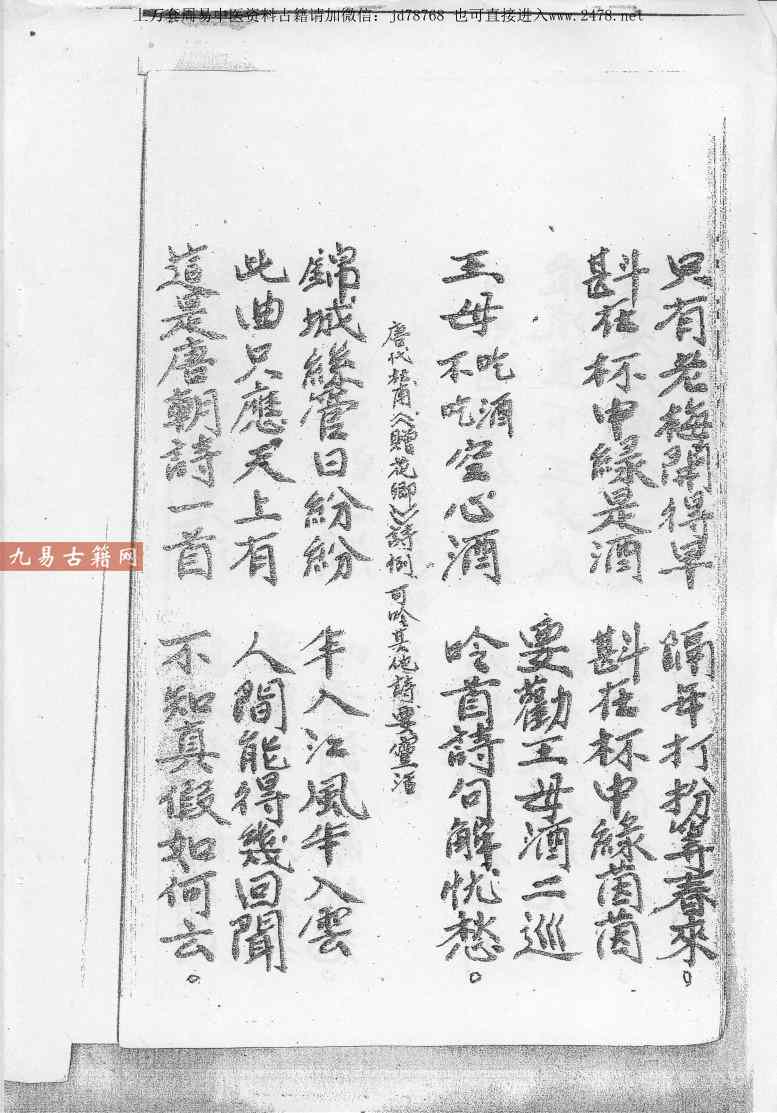 上万套周易中医资料古籍请加微信：jd78768 也可直接进入www.2478.net
只有老梅開得早 隔年打扮等春來。
斟在杯中綠是酒 斟在杯中綠茵茵
要勸王母酒二巡
王母吃酒不吃空心酒 吟首詩句解忧愁。
唐代杜甫《贈花卿》詩例 可吟其他詩要靈活
錦城絲管日紛紛 半入江風半入雲
此曲只應天上有 人間能得幾回聞
這是唐朝詩一首 不知真假如何云。
九易古籍网